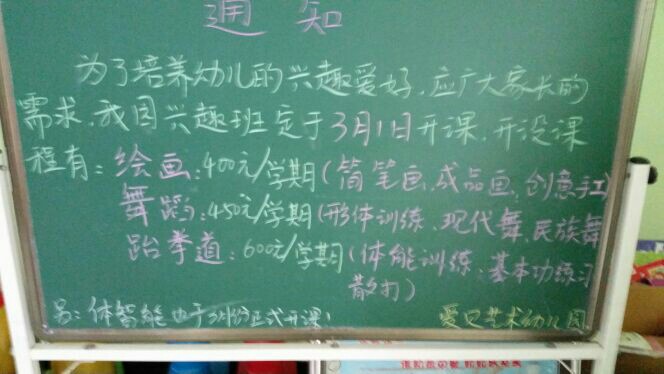 通 知
为了培养幼儿的兴趣爱好、应广大家长的
需求、我园兴趣班定于3月1日开课、开设课
程有：绘画：400元/学期(简笔画、成品画、创意手工)
舞蹈：450元/学期(形体训练、现代舞、民族舞
跆拳道：600元/学期(体能训练、基本功练习
散打)
另：体智能也于3月份正式开课！
艺术幼儿园